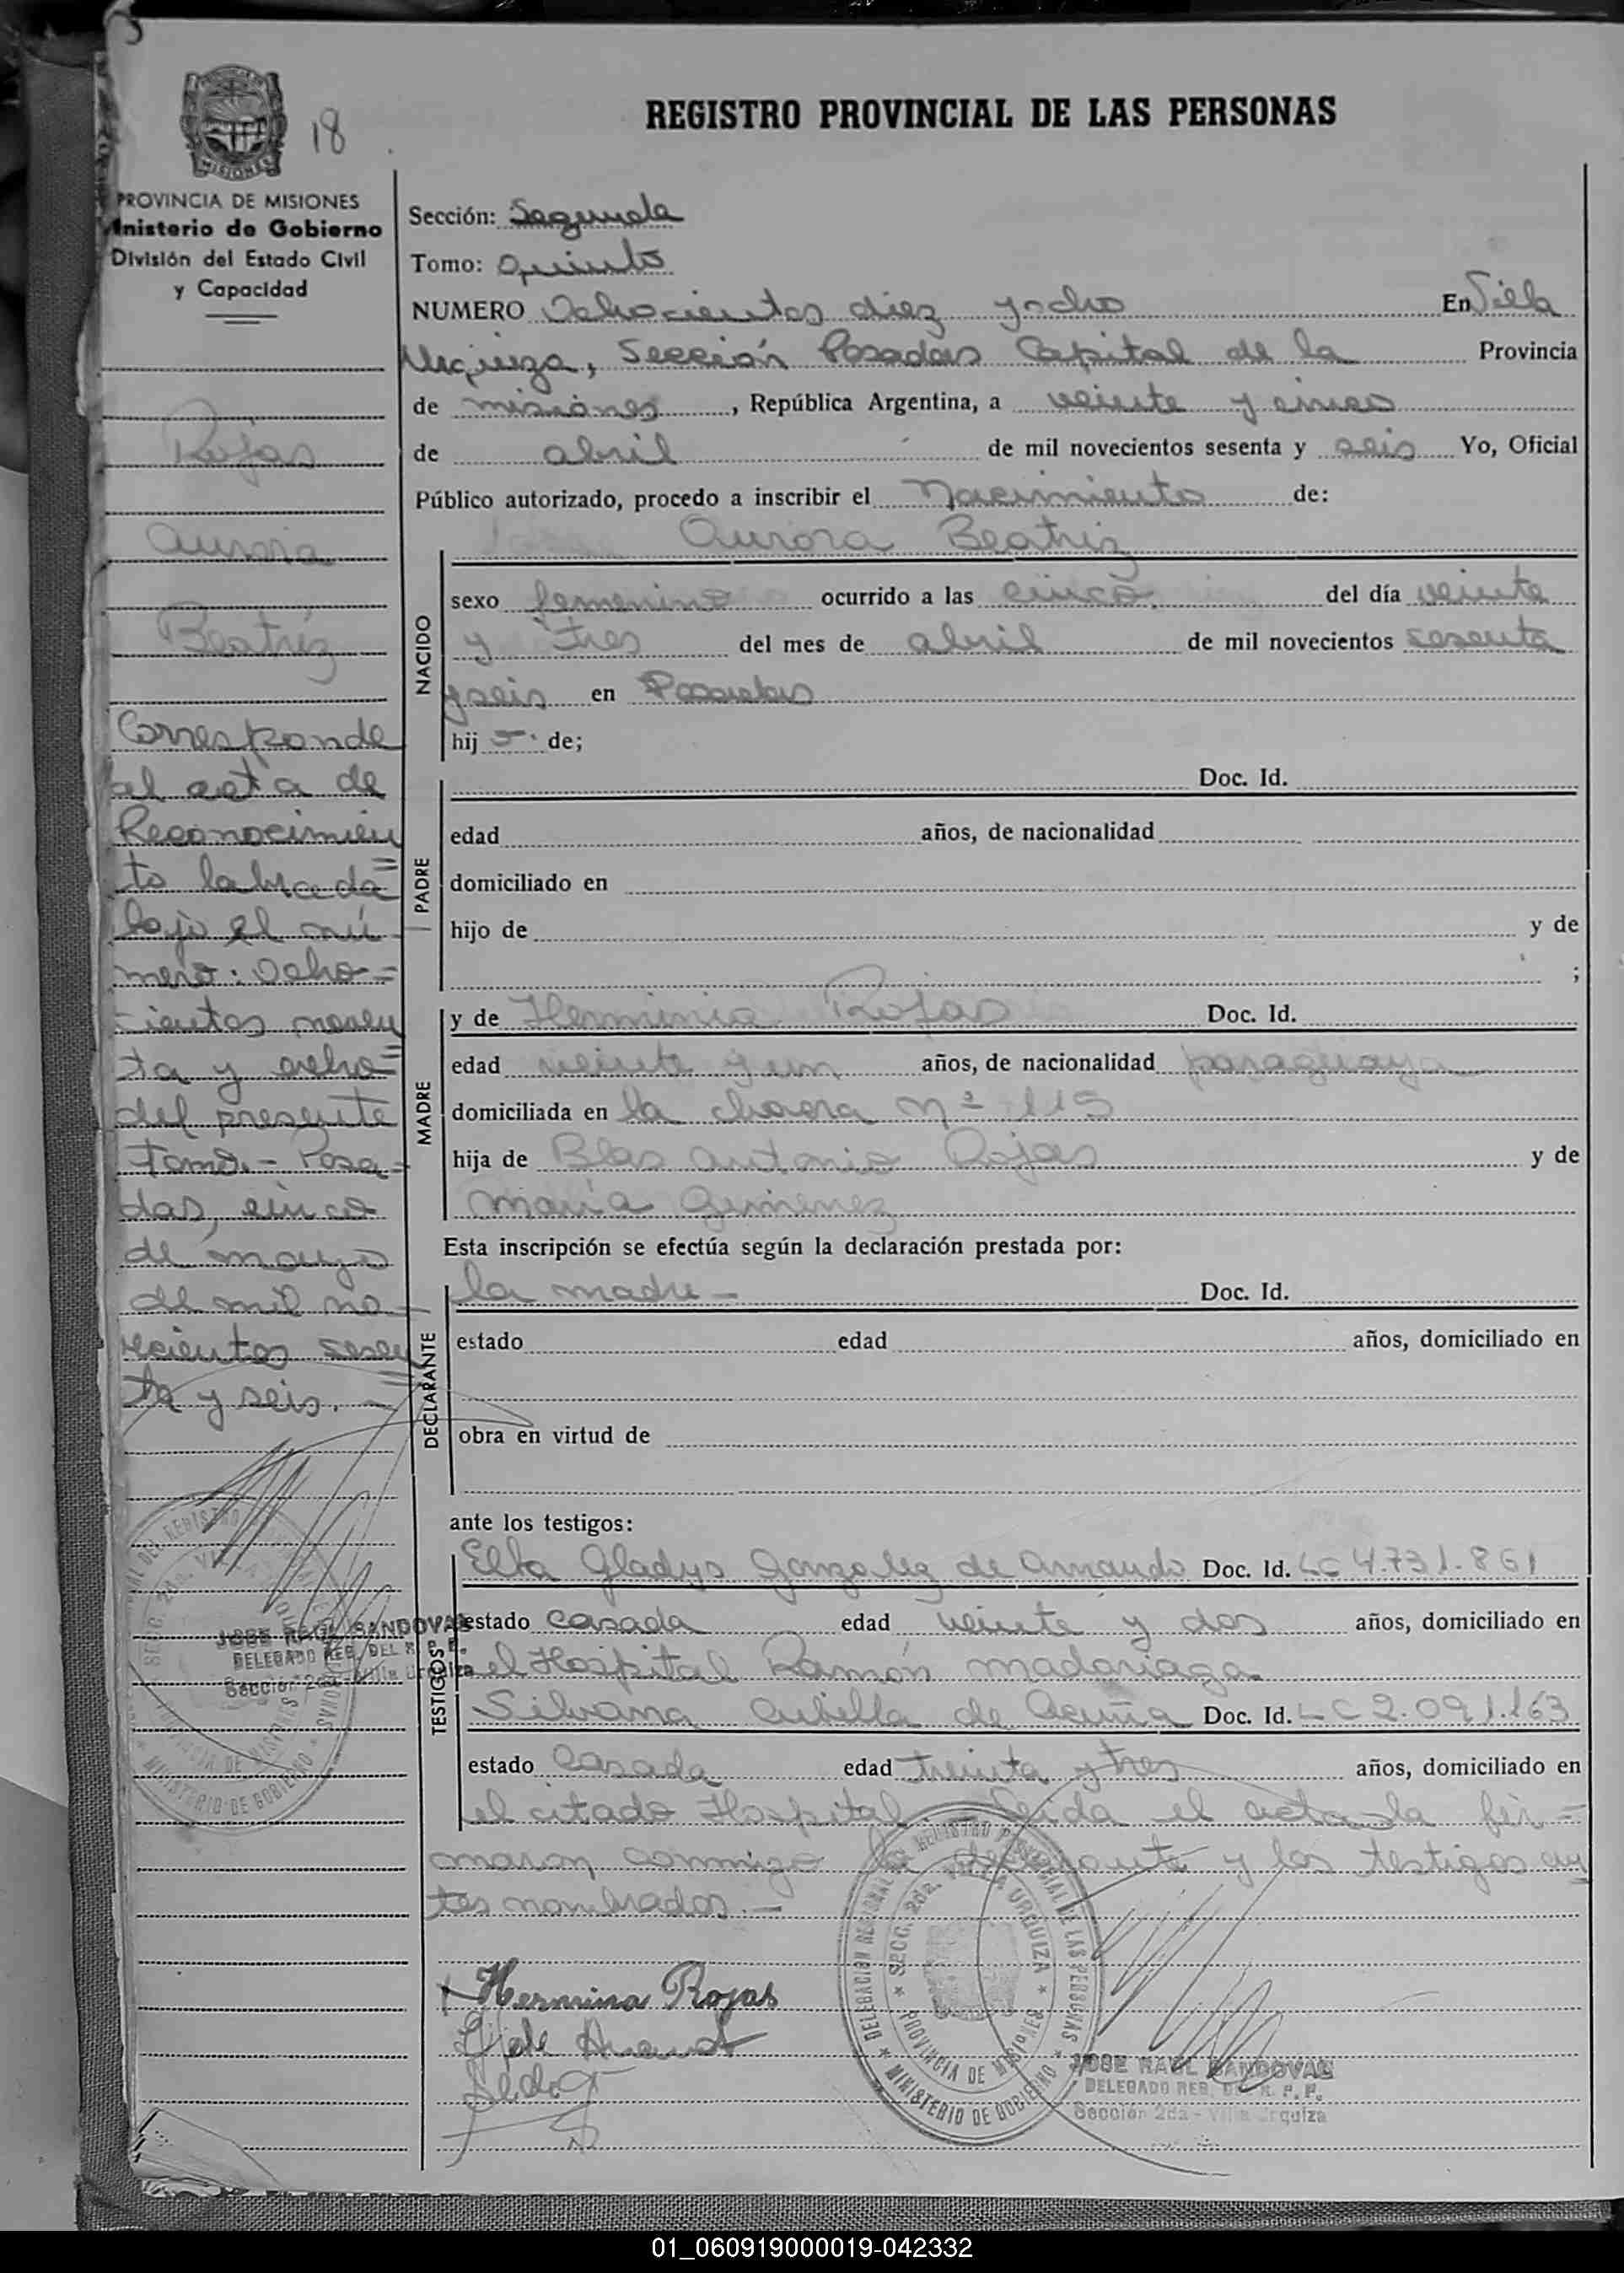 18
REGISTRO PROVINCIAL DE LAS PERSONAS
MISIONES
PROVINCIA DE MISIONES
Ministerio de Gobierno
División del Estado Civil
y Capacidad
Rojas
Aurora
Beatríz
Corresponde
al acta de
Reconocimien
to labrada=
bajo el nú-
mero: Ocho=
cientos noven
ta y ocho=
del presente
Tomo.- Posa=
das, cinco
de mayo
de mil no-
vecientos sesen
ta y seis.-
JOSE RAUL SANDOVAL
DELEGADO REG. DEL R. P. P.
Sección 2da - Villa Urquiza
Sección: Segunda
Tomo: Quinto
NUMERO Ochocientos diez y ocho En Villa
Urquiza, Sección Posadas Capital de la Provincia
de misiones, República Argentina, a veinte y cinco
de abril de mil novecientos sesenta y seis Yo, Oficial
Público autorizado, procedo a inscribir el Nacimiento de:
NACIDO
Aurora Beatriz
sexo femenino ocurrido a las cinco del día veinte
y tres del mes de abril de mil novecientos sesenta
y seis en Posadas
hij de;
PADRE
Doc. Id.
edad años, de nacionalidad
domiciliado en
hijo de y de
;
MADRE
y de Herminia Rojas Doc. Id.
edad veinte y un años, de nacionalidad paraguaya
domiciliada en la chacra nº 115
hija de Blas Antonio Rojas y de
María Gimenez
Esta inscripción se efectúa según la declaración prestada por:
DECLARANTE
la madre - Doc. Id.
estado edad años, domiciliado en
obra en virtud de
ante los testigos:
TESTIGOS
Elba Gladys Gonzalez de Amando Doc. Id. LC 4.731.861
estado casada edad veinte y dos años, domiciliado en
el Hospital Ramón madariaga
Silvana de Acuña Doc. Id. LC 2.091.163
estado Casada edad treinta y tres años, domiciliado en
el citado Hospital Leida el acta la fir=
maron conmigo la declarante y los testigos an
tes nombrados.-
Hermina Rojas
DELEGACION REGIONAL DEL REGISTRO PROVINCIAL DE LAS PERSONAS
SECC. 2da. VILLA URQUIZA
PROVINCIA DE MISIONES
MINISTERIO DE GOBIERNO
JOSE RAUL SANDOVAL
DELEGADO REG. DEL R. P. P.
Sección 2da - Villa Urquiza
01_060919000019-042332